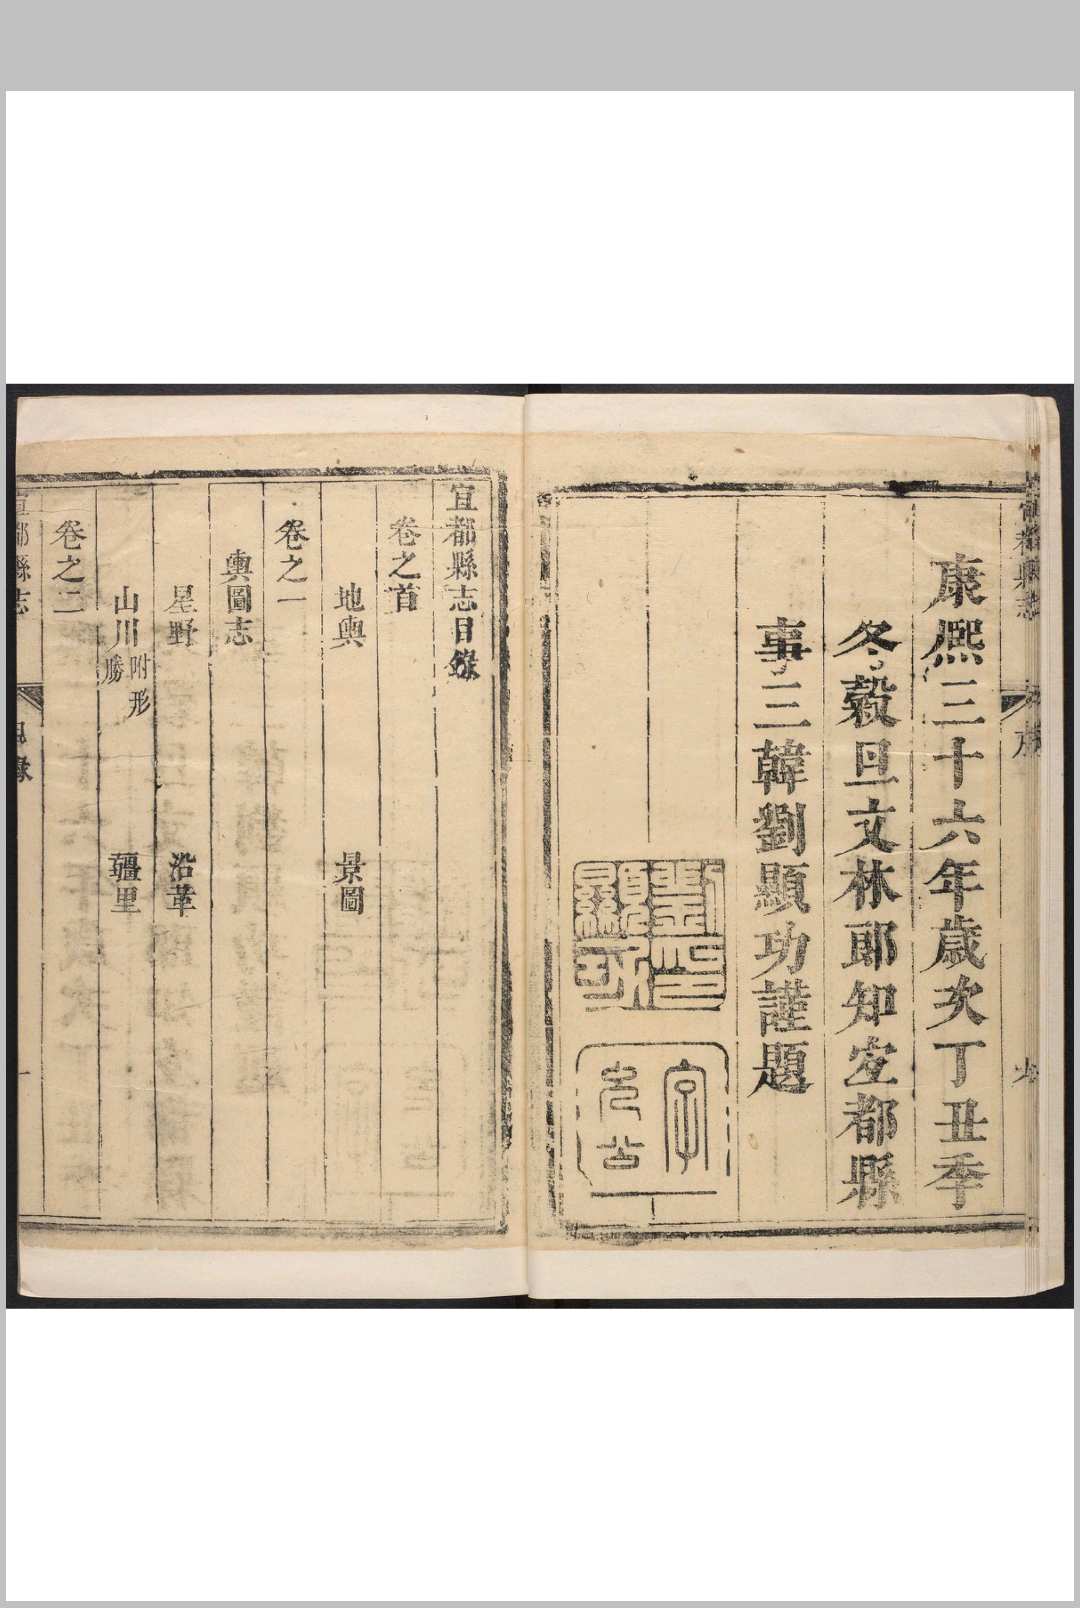 康熙三十六年歲次丁丑季
冬穀旦文林郎知宜都縣
事三韓劉顯功謹題
宜都縣志目錄
卷之首
地輿 景圖
卷之一
輿圖志
星野 沿革
山川附形勝 疆里
卷之二
宜都縣志 目錄 一